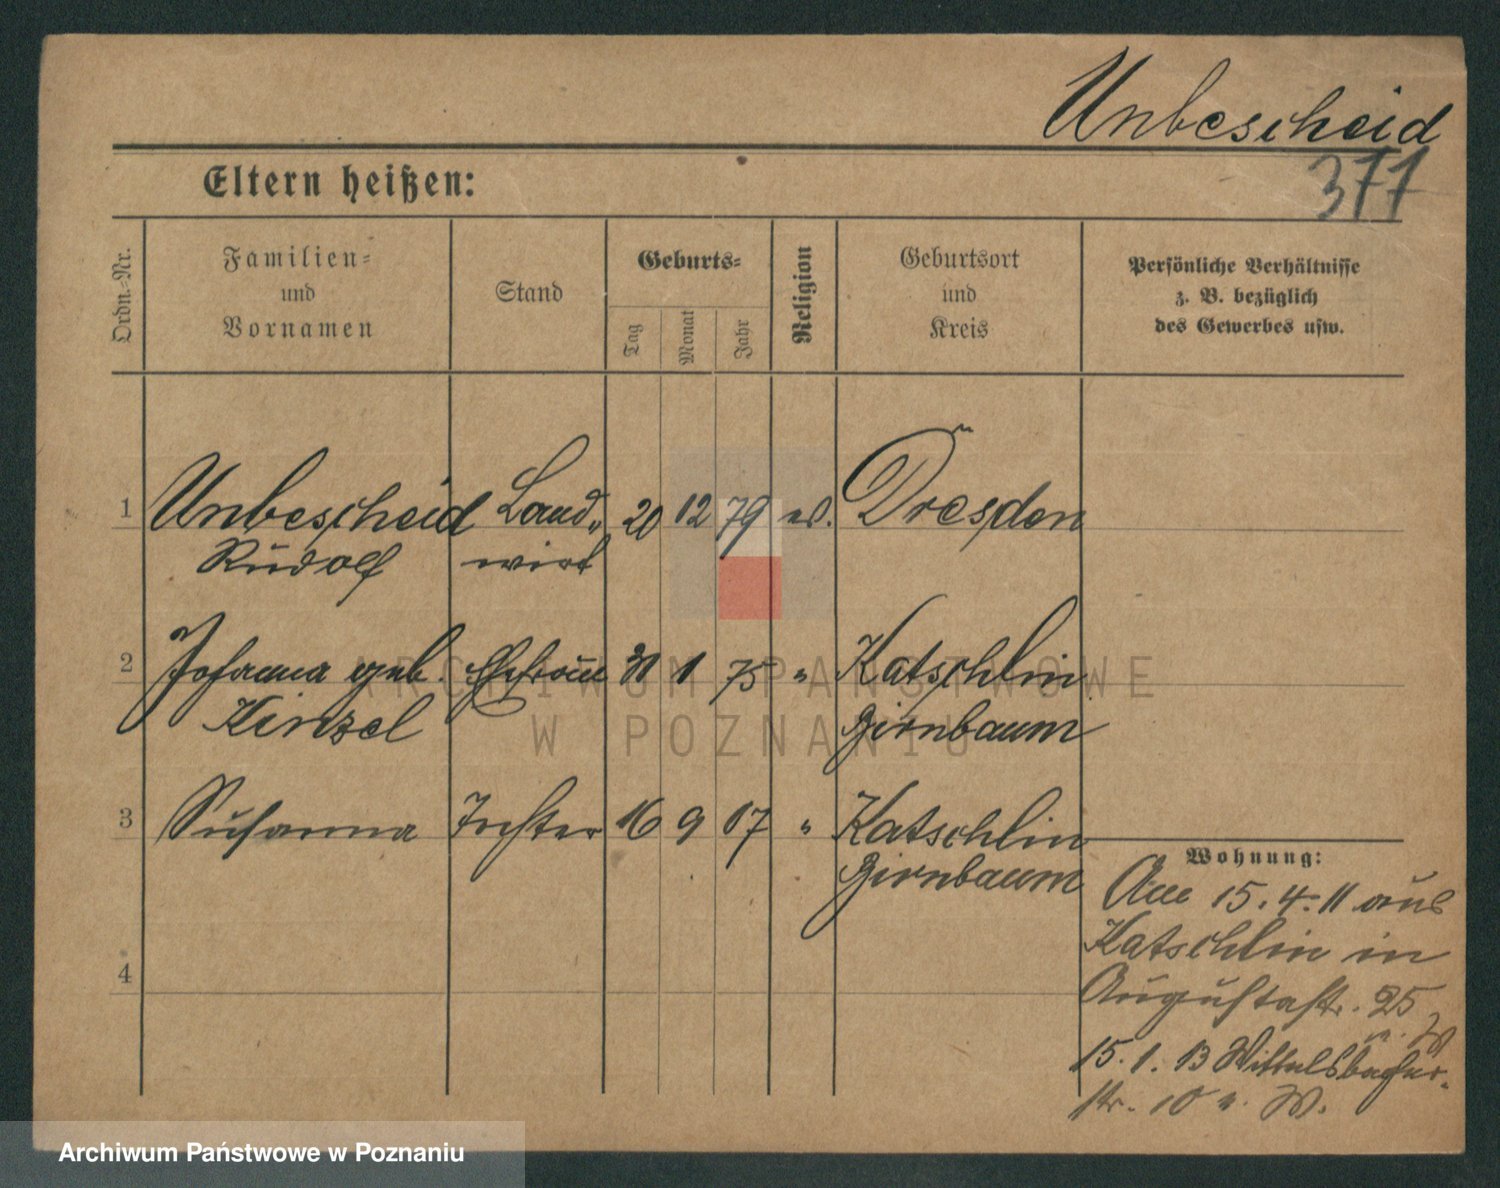 Unbescheid
377
Eltern heißen:
Ordn.-Nr.
Familien-
und
Vornamen
Stand
Geburts-
Tag
Monat
Jahr
Religion
Geburtsort
und
Kreis
Persönliche Verhältnisse
z. B. bezüglich
des Gewerbes usw.
1 Unbescheid Land- 20 12 79 ev. Dresden
Rudolf wirt
2 Johanna geb. Ehefrau 31 1 75 " Katschlin
Kinzel Birnbaum
3 Susanna Tochter 16 9 07 " Katschlin
Birnbaum
4
Wohnung:
Am 15.4.11 aus
Katschlin in
Augustastr. 25
15.1.13 Wittelsbacher-
str. 10 n. W.
ARCHIWUM PAŃSTWOWE
W POZNANIU
Archiwum Państwowe w Poznaniu